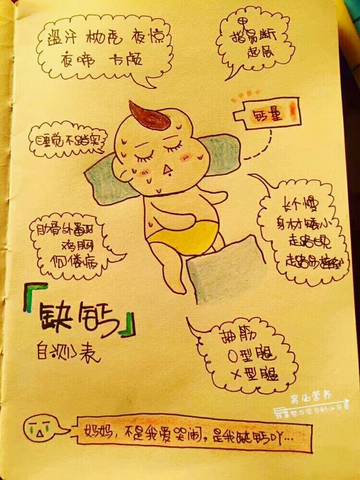 盗汗 枕秃 夜惊
夜啼 方颅
甲
指易断
起层
钙量
睡觉不踏实
长个慢
身材矮小
走路晚
走路易摔跤
肋骨外翻
鸡胸
佝偻病
「缺钙」
自测表
抽筋
O型腿
X型腿
妈妈，不是我爱哭闹，是我缺钙吖…